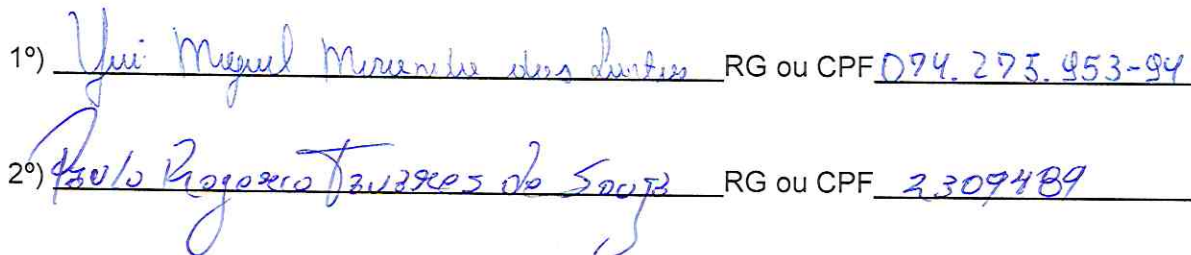 1º) Yuri Miguel Miranda dos Santos RG ou CPF 074.275.953-94
2º) Paulo Rogerio Tavares de Souza RG ou CPF 2309489